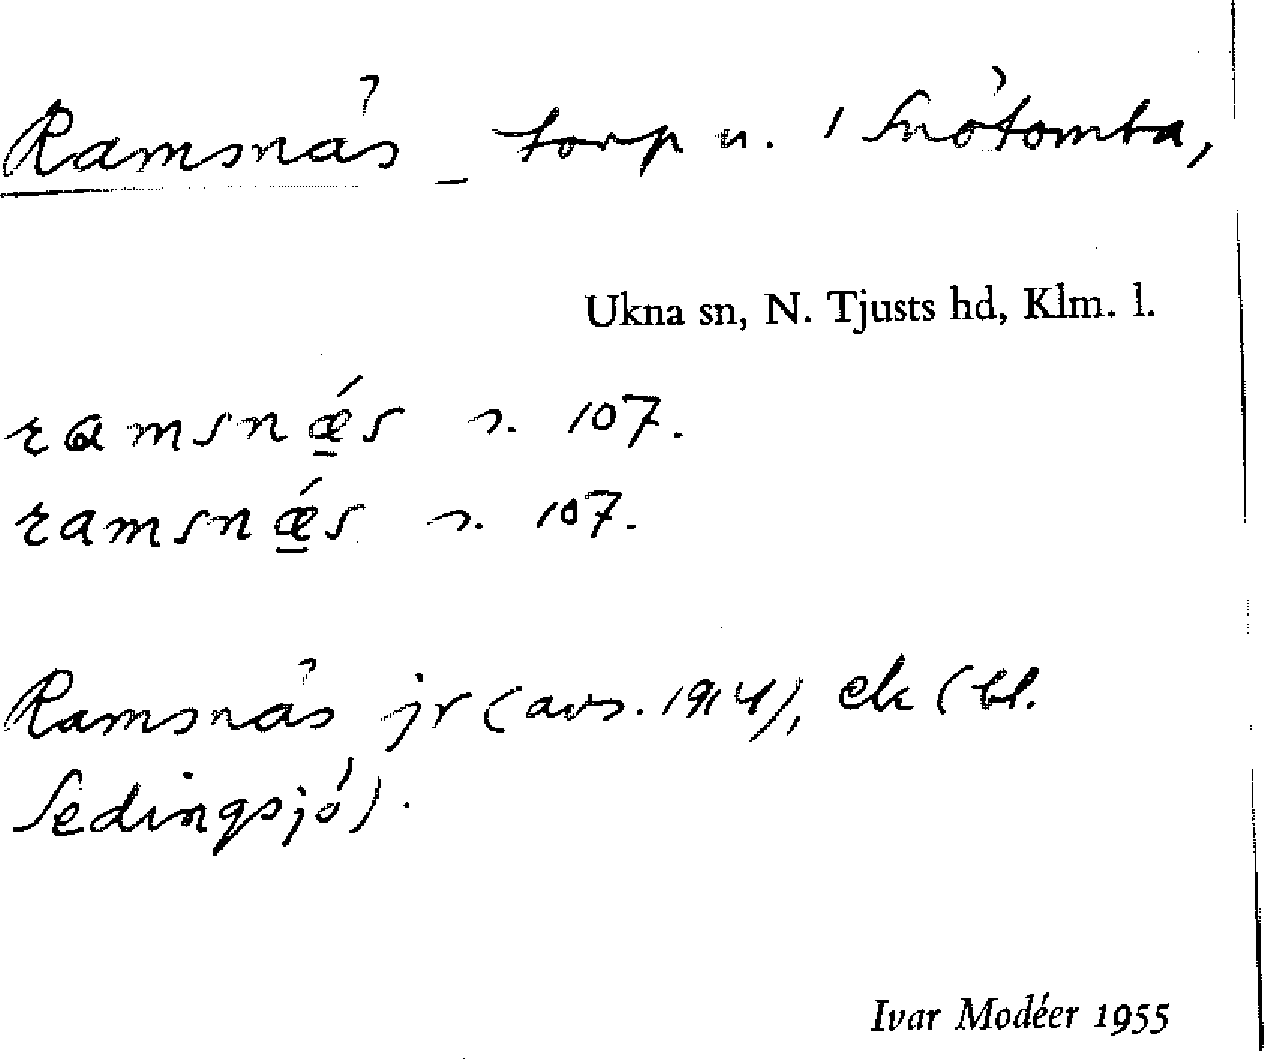 Ramsnäs _ torp u. / Snötomta,
Ukna sn, N. Tjusts hd, Klm. l.
ramsnǽs s. 107.
ramsnǽs s. 107.
Ramsnäs jr (avs. 1914), ek (bl.
Sedingsjö).
Ivar Modéer 1955